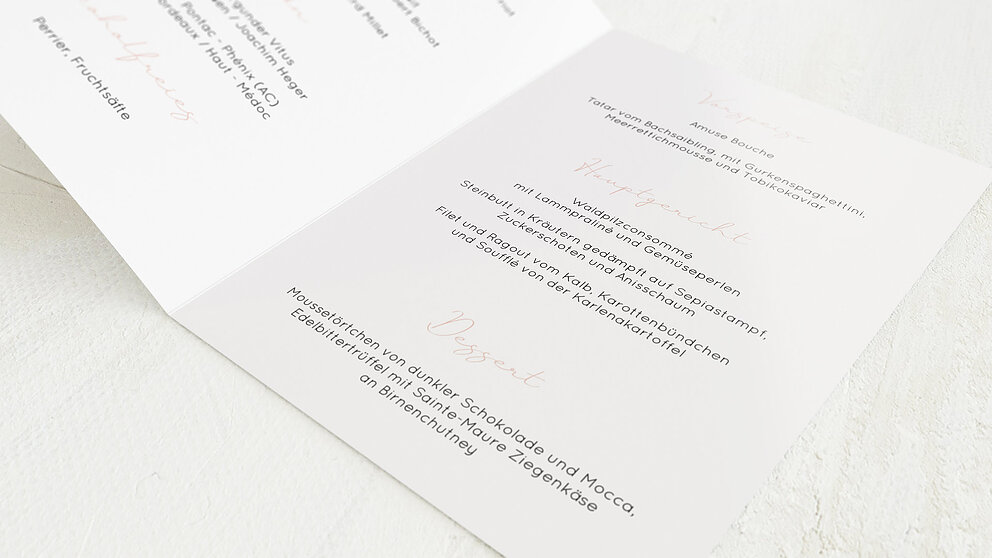 Millet
Bichot
Vitus
/ Joachim Heger
Pontac - Phénix (AC)
/ Haut - Médoc
Perrier, Fruchtsäfte
Vorspeise
Amuse Bouche
Tatar vom Bachsaibling, mit Gurkenspaghettini,
Meerrettichmousse und Tobikokaviar
Hauptgericht
Waldpilzconsommé
mit Lammpraliné und Gemüseperlen
Steinbutt in Kräutern gedämpft auf Sepiastampf,
Zuckerschoten und Anisschaum
Filet und Ragout vom Kalb, Karottenbündchen
und Soufflé von der Karlenakartoffel
Dessert
Moussetörtchen von dunkler Schokolade und Mocca,
Edelbittertrüffel mit Sainte-Maure Ziegenkäse
an Birnenchutney